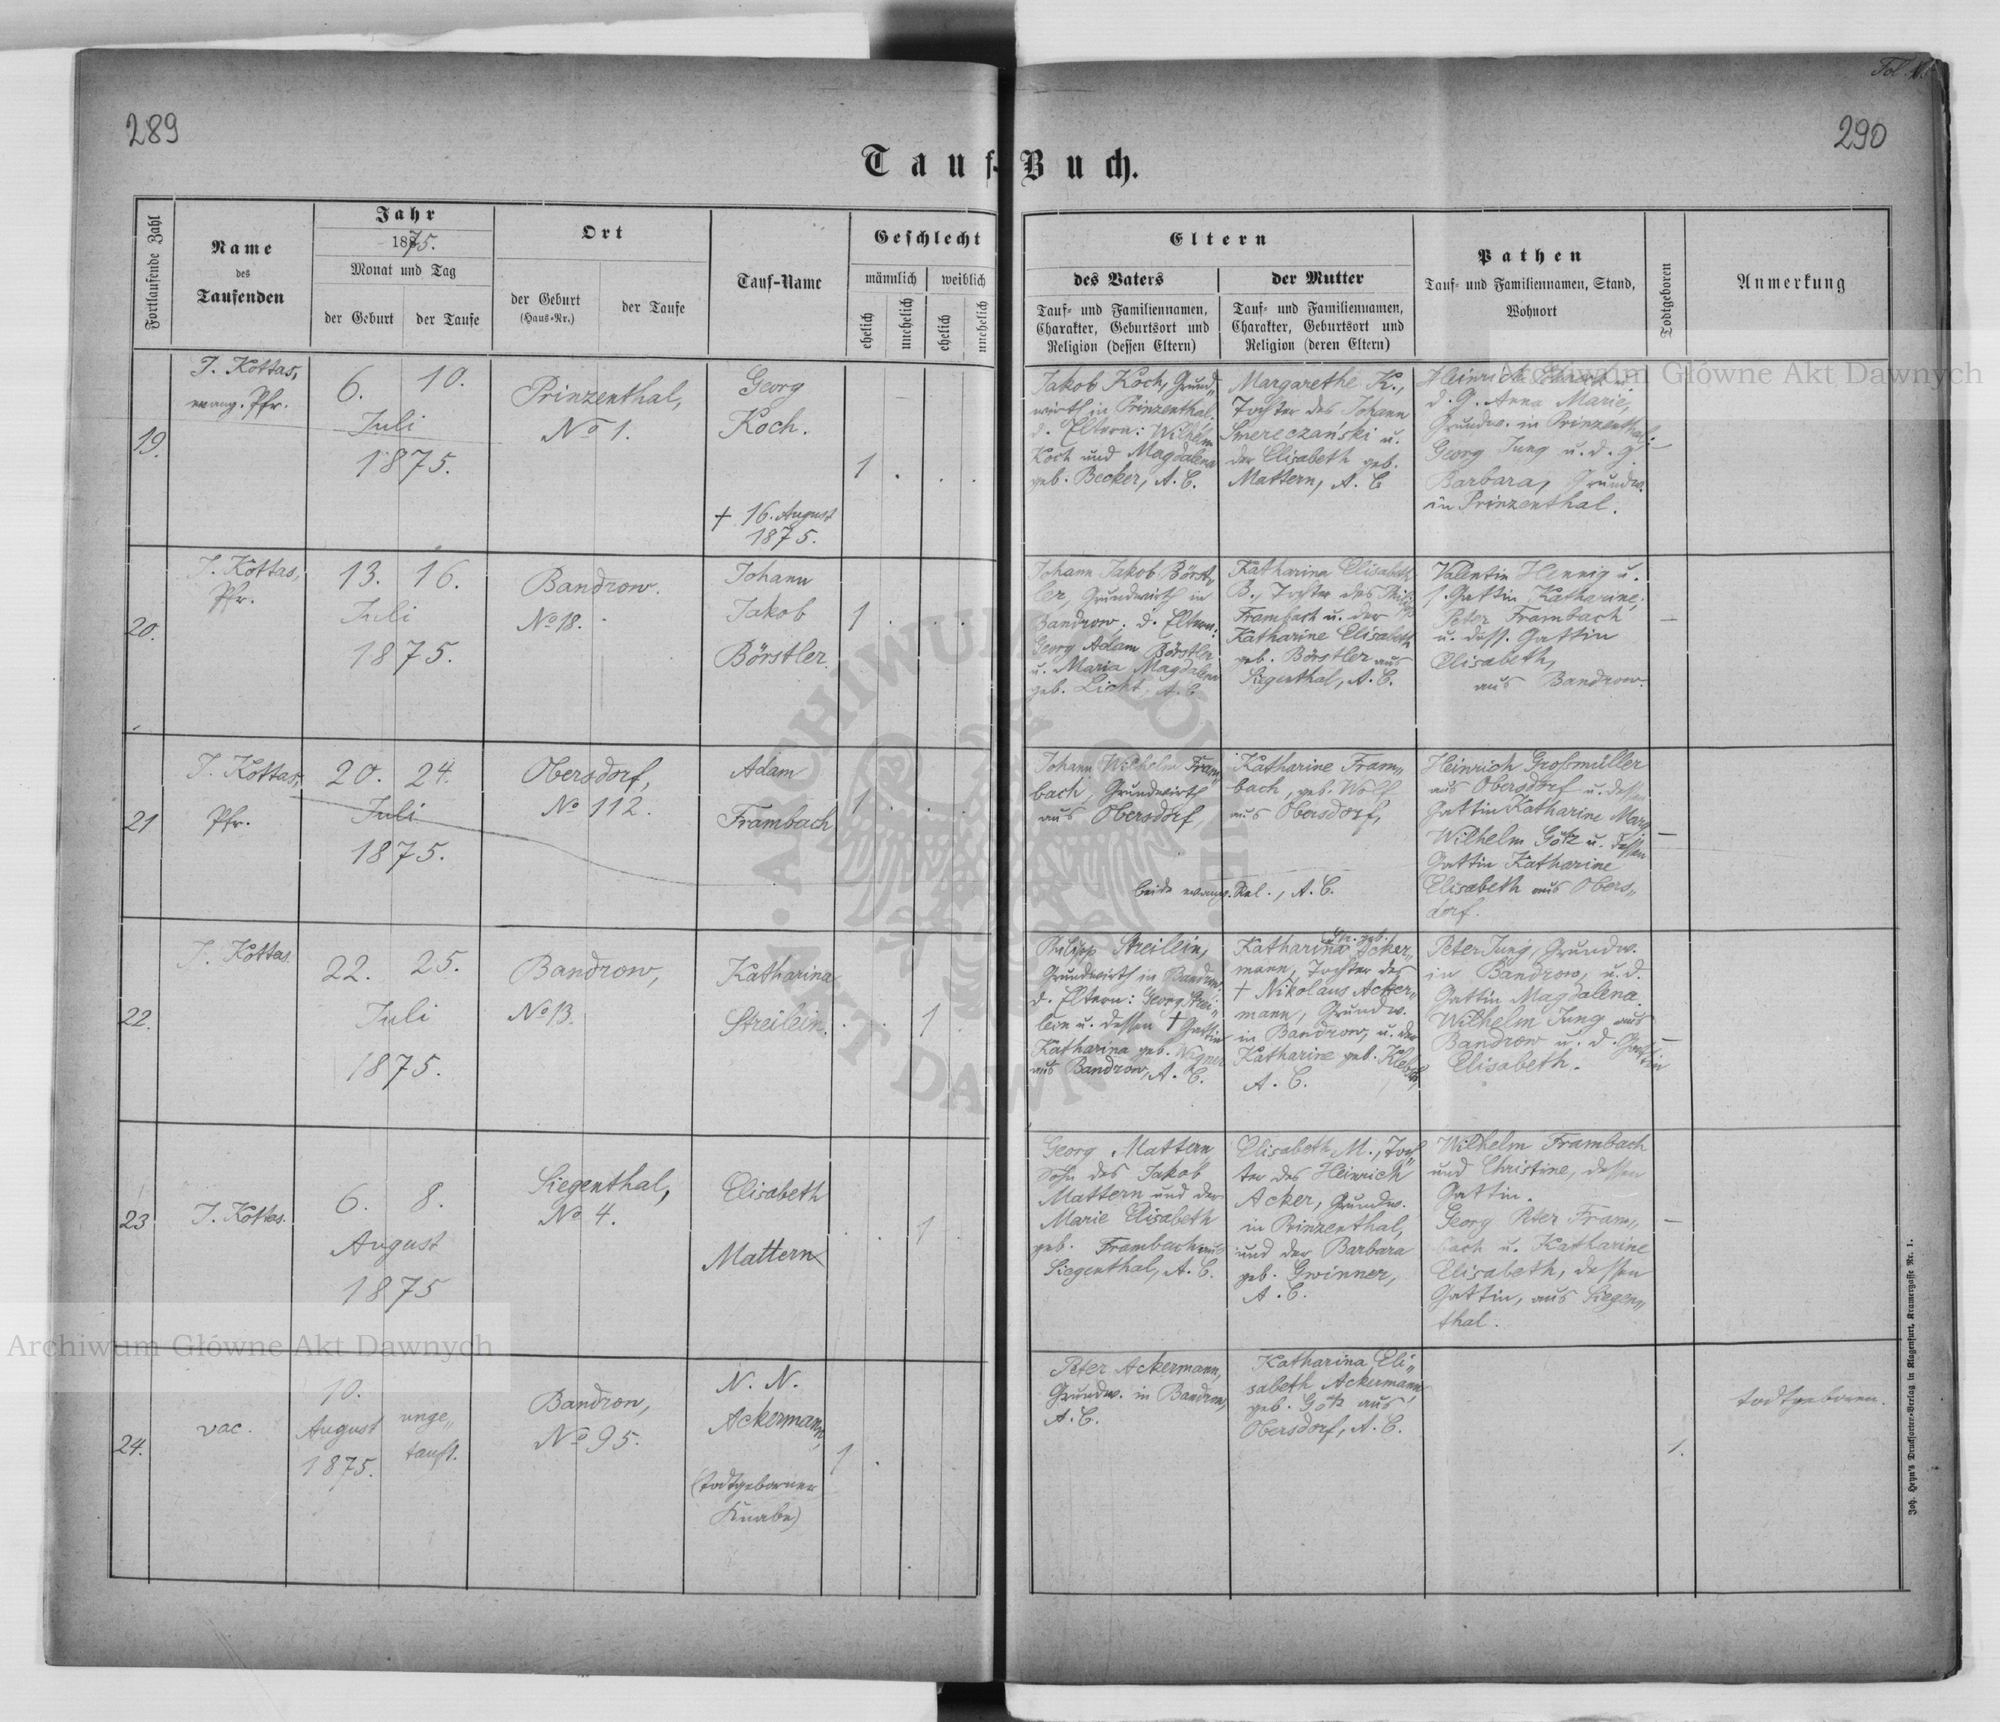 289
290
Tauf-Buch.
Fortlaufende Zahl
Name
des
Taufenden
Jahr
1875.
Monat und Tag
der Geburt
der Taufe
Ort
der Geburt
(Haus-Nr.)
der Taufe
Tauf-Name
Geschlecht
männlich
weiblich
ehelich
unehelich
ehelich
unehelich
Eltern
des Vaters
Tauf- und Familiennamen,
Charakter, Geburtsort und
Religion (dessen Eltern)
der Mutter
Tauf- und Familiennamen,
Charakter, Geburtsort und
Religion (deren Eltern)
Pathen
Tauf- und Familiennamen, Stand,
Wohnort
Todtgeboren
Anmerkung
19.
J. Kottas,
evang. Pfr.
6.
10.
Juli
1875.
Prinzenthal,
No 1.
Georg
Koch.
† 16. August
1875.
1
Jakob Koch, Grund„
wirth in Prinzenthal.
d. Eltern: Wilhelm
Koch und Magdalena
geb. Becker, A. C.
Margarethe K.,
Tochter des Johann
Smereczański u.
der Elisabeth geb.
Mattern, A. C.
Heinrich
d. G. Anna Marie,
Grundw. in Prinzenthal.
Georg Jung u. d. G.
Barbara, Grundw.
in Prinzenthal.
20.
J. Kottas,
Pfr.
13.
16.
Juli
1875.
Bandrow.
No 18.
Johann
Jakob
Börstler.
1
Johann Jakob Börst„
ler, Grundwirth in
Bandrow; d. Eltern:
Georg Adam Börstler
u. Maria Magdalena
geb. Licht. A. C.
Katharina Elisabeth
B., Tochter des Philipp
Frambach u. der
Katharine Elisabeth
geb. Börstler aus
Siegenthal, A. C.
Valentin Hennig u.
s. Gattin Katharine;
Peter Frambach
u. dess. Gattin
Elisabeth,
aus Bandrow.
21
J. Kottas,
Pfr.
20.
24.
Juli
1875.
Obersdorf,
No 112.
Adam
Frambach
1
Johann Wilhelm Fram„
bach, Grundwirth
aus Obersdorf,
Katharine Fram„
bach, geb. Wolf
aus Obersdorf,
beide evang. Rel., A. C.
Heinrich Großmüller
aus Obersdorf u. dessen
Gattin Katharine Marg
Wilhelm Götz u. dessen
Gattin Katharine
Elisabeth aus Obers„
dorf.
22.
J. Kottas.
22.
25.
Juli
1875.
Bandrow,
No 13.
Katharina
Streilein.
1
Philipp Streilein,
Grundwirth in Bandrow,
d. Eltern: Georg Strei„
lein u. dessen † Gattin
Katharina geb. Wagner
aus Bandrow, A. C.
Katharina Acker„
mann, Tochter des
† Nikolaus Acker„
mann, Grundw.
in Bandrow, u. der
Katharine geb.
A. C.
Peter Jung, Grundw.
in Bandrow, u. d.
Gattin Magdalena.
Wilhelm Jung aus
Bandrow u. d. Gattin
Elisabeth.
23
J. Kottas.
6.
8.
August
1875
Siegenthal,
No 4.
Elisabeth
Mattern
1
Georg Mattern,
Sohn des Jakob
Mattern und der
Marie Elisabeth
geb. Frambach aus
Siegenthal, A. C.
Elisabeth M., Toch„
ter des Heinrich
Acker, Grundw.
in Prinzenthal,
und der Barbara
geb. Gwinner,
A. C.
Wilhelm Frambach
und Christine, dessen
Gattin.
Georg Peter Fram„
bach u. Katharine
Elisabeth, dessen
Gattin, aus Siegen„
thal.
24.
vac.
10.
August
1875.
unge„
tauft.
Bandrow,
No 95.
N. N.
Ackermann,
(todtgeborner
Knabe)
1
Peter Ackermann,
Grundw. in Bandrow,
A. C.
Katharina Eli„
sabeth Ackermann,
geb. Götz aus
Obersdorf, A. C.
1.
todtgeboren.
Joh. Heyn's Drucksorten-Verlag in Klagenfurt, Kramergasse Nr. 1.
Archiwum Główne Akt Dawnych
Archiwum Główne Akt Dawnych
ARCHIWUM GŁÓWNE AKT DAWNYCH